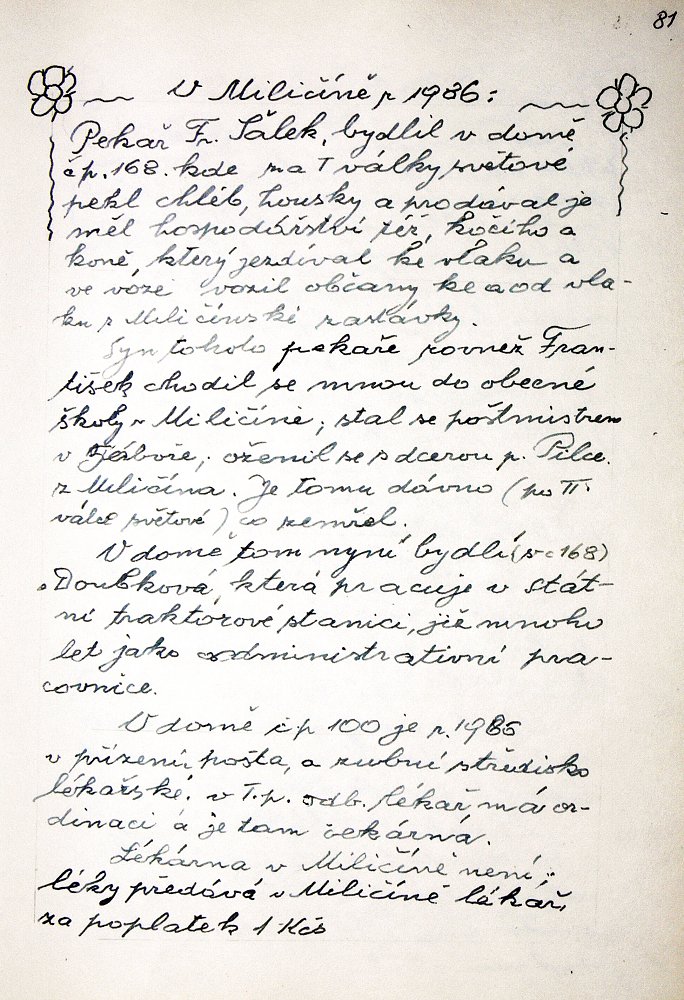 81
V Miličíně r 1986:
Pekař Fr. Sálek, bydlil v domě
čp. 168. kde za I války světové
pekl chléb, housky a prodával je
měl hospodářství též, kočího a
koně, který jezdíval ke vlaku a
ve voze vozil občany ke a od vla-
ku z Miličínské zastávky.
Syn tohoto pekaře rovněž Fran-
tišek chodil se mnou do obecné
školy v Miličíně; stal se poštmistrem
v Táboře; oženil se s dcerou p. Pilce.
z Miličína. Je tomu dávno (po II.
válce světové) co zemřel.
V domě tom nyní bydlí (v č 168)
Doubková, která pracuje v stát-
ní traktorové stanici, již mnoho
let jako administrativní pra-
covnice.
V domě čp 100 je r. 1986
v přízemí pošta, a zubní středisko
lékařské. v I. p. odb. lékař má or-
dinaci a je tam čekárna.
Lékárna v Miličíně není;
léky předává v Miličíně lékař,
za poplatek 1 Kčs